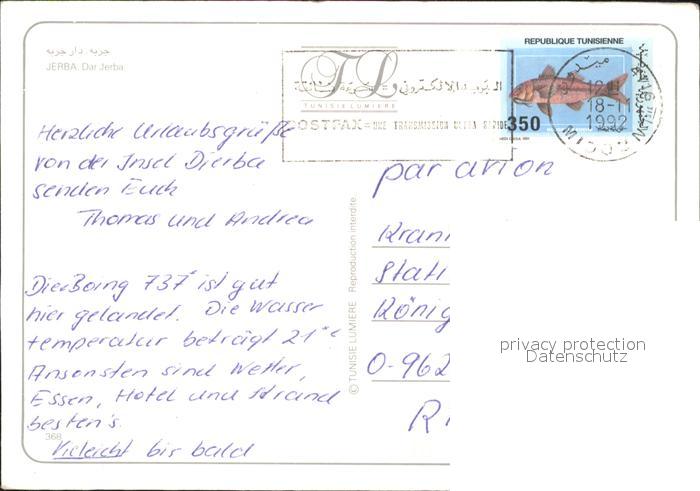 جربة. دار جربة
JERBA. Dar Jerba
REPUBLIQUE TUNISIENNE
TL
TUNISIE LUMIERE
POSTFAX = UNE TRANSMISSION ULTRA RAPIDE
350
12H
18-11
1992
MIDOUN
Herzliche Urlaubsgrüße
von der Insel Djerba
senden Euch
Thomas und Andrea
Die Boing 737 ist gut
hier gelandet. Die Wasser
temperatur beträgt 21°C
Ansonsten sind Wetter,
Essen, Hotel und Strand
besten's.
Vieleicht bis bald
368
© TUNISIE LUMIERE Reproduction interdite
par avion
Kram
Stati
König
O-962
R
privacy protection
Datenschutz